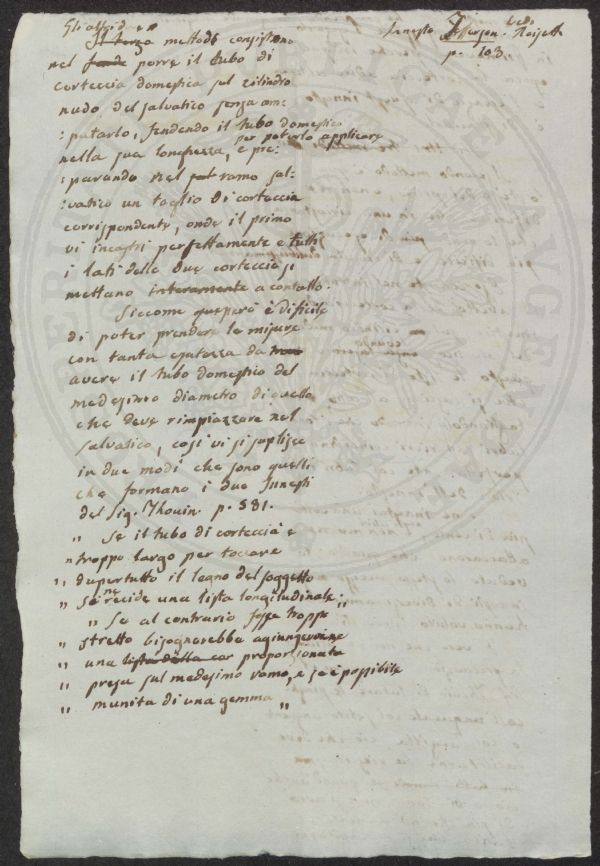 Gli altri due
Il terzo metodi consistono
nel fende porre il tubo di
corteccia domestica sul cilindro
nudo del salvatico senza am:
:putarlo, fendendo il tubo domestico
per poterlo applicare
nella sua longhezza, e pre:
:parando nel ramo sal:
:vatico un taglio di corteccia
corrispondente, onde il primo
vi incastri perfettamente e tutti
i lati delle due corteccie si
mettano interamente a contatto.
Siccome è difficile
di poter prendere le misure
con tanta esatezza da
avere il tubo domestico del
medesimo diametro di quello
che deve rimpiazzare nel
salvatico, così vi si suplisce
in due modi che sono quelli
che formano i due Innesti
del Sig. Thouin p. 581.
„ Se il tubo di corteccia è
„ troppo largo per toccare
„ dapertutto il legno del soggetto
„ se ne recide una lista longitudinale „
„ Se al contrario fosse troppo
„ stretto bisognerebbe agiungervene
„ una lista della cor proporzionata
„ presa sul medesimo ramo, e se è possibile
„ munita di una gemma „
Innesto Jefferson. Vedi
p. 103